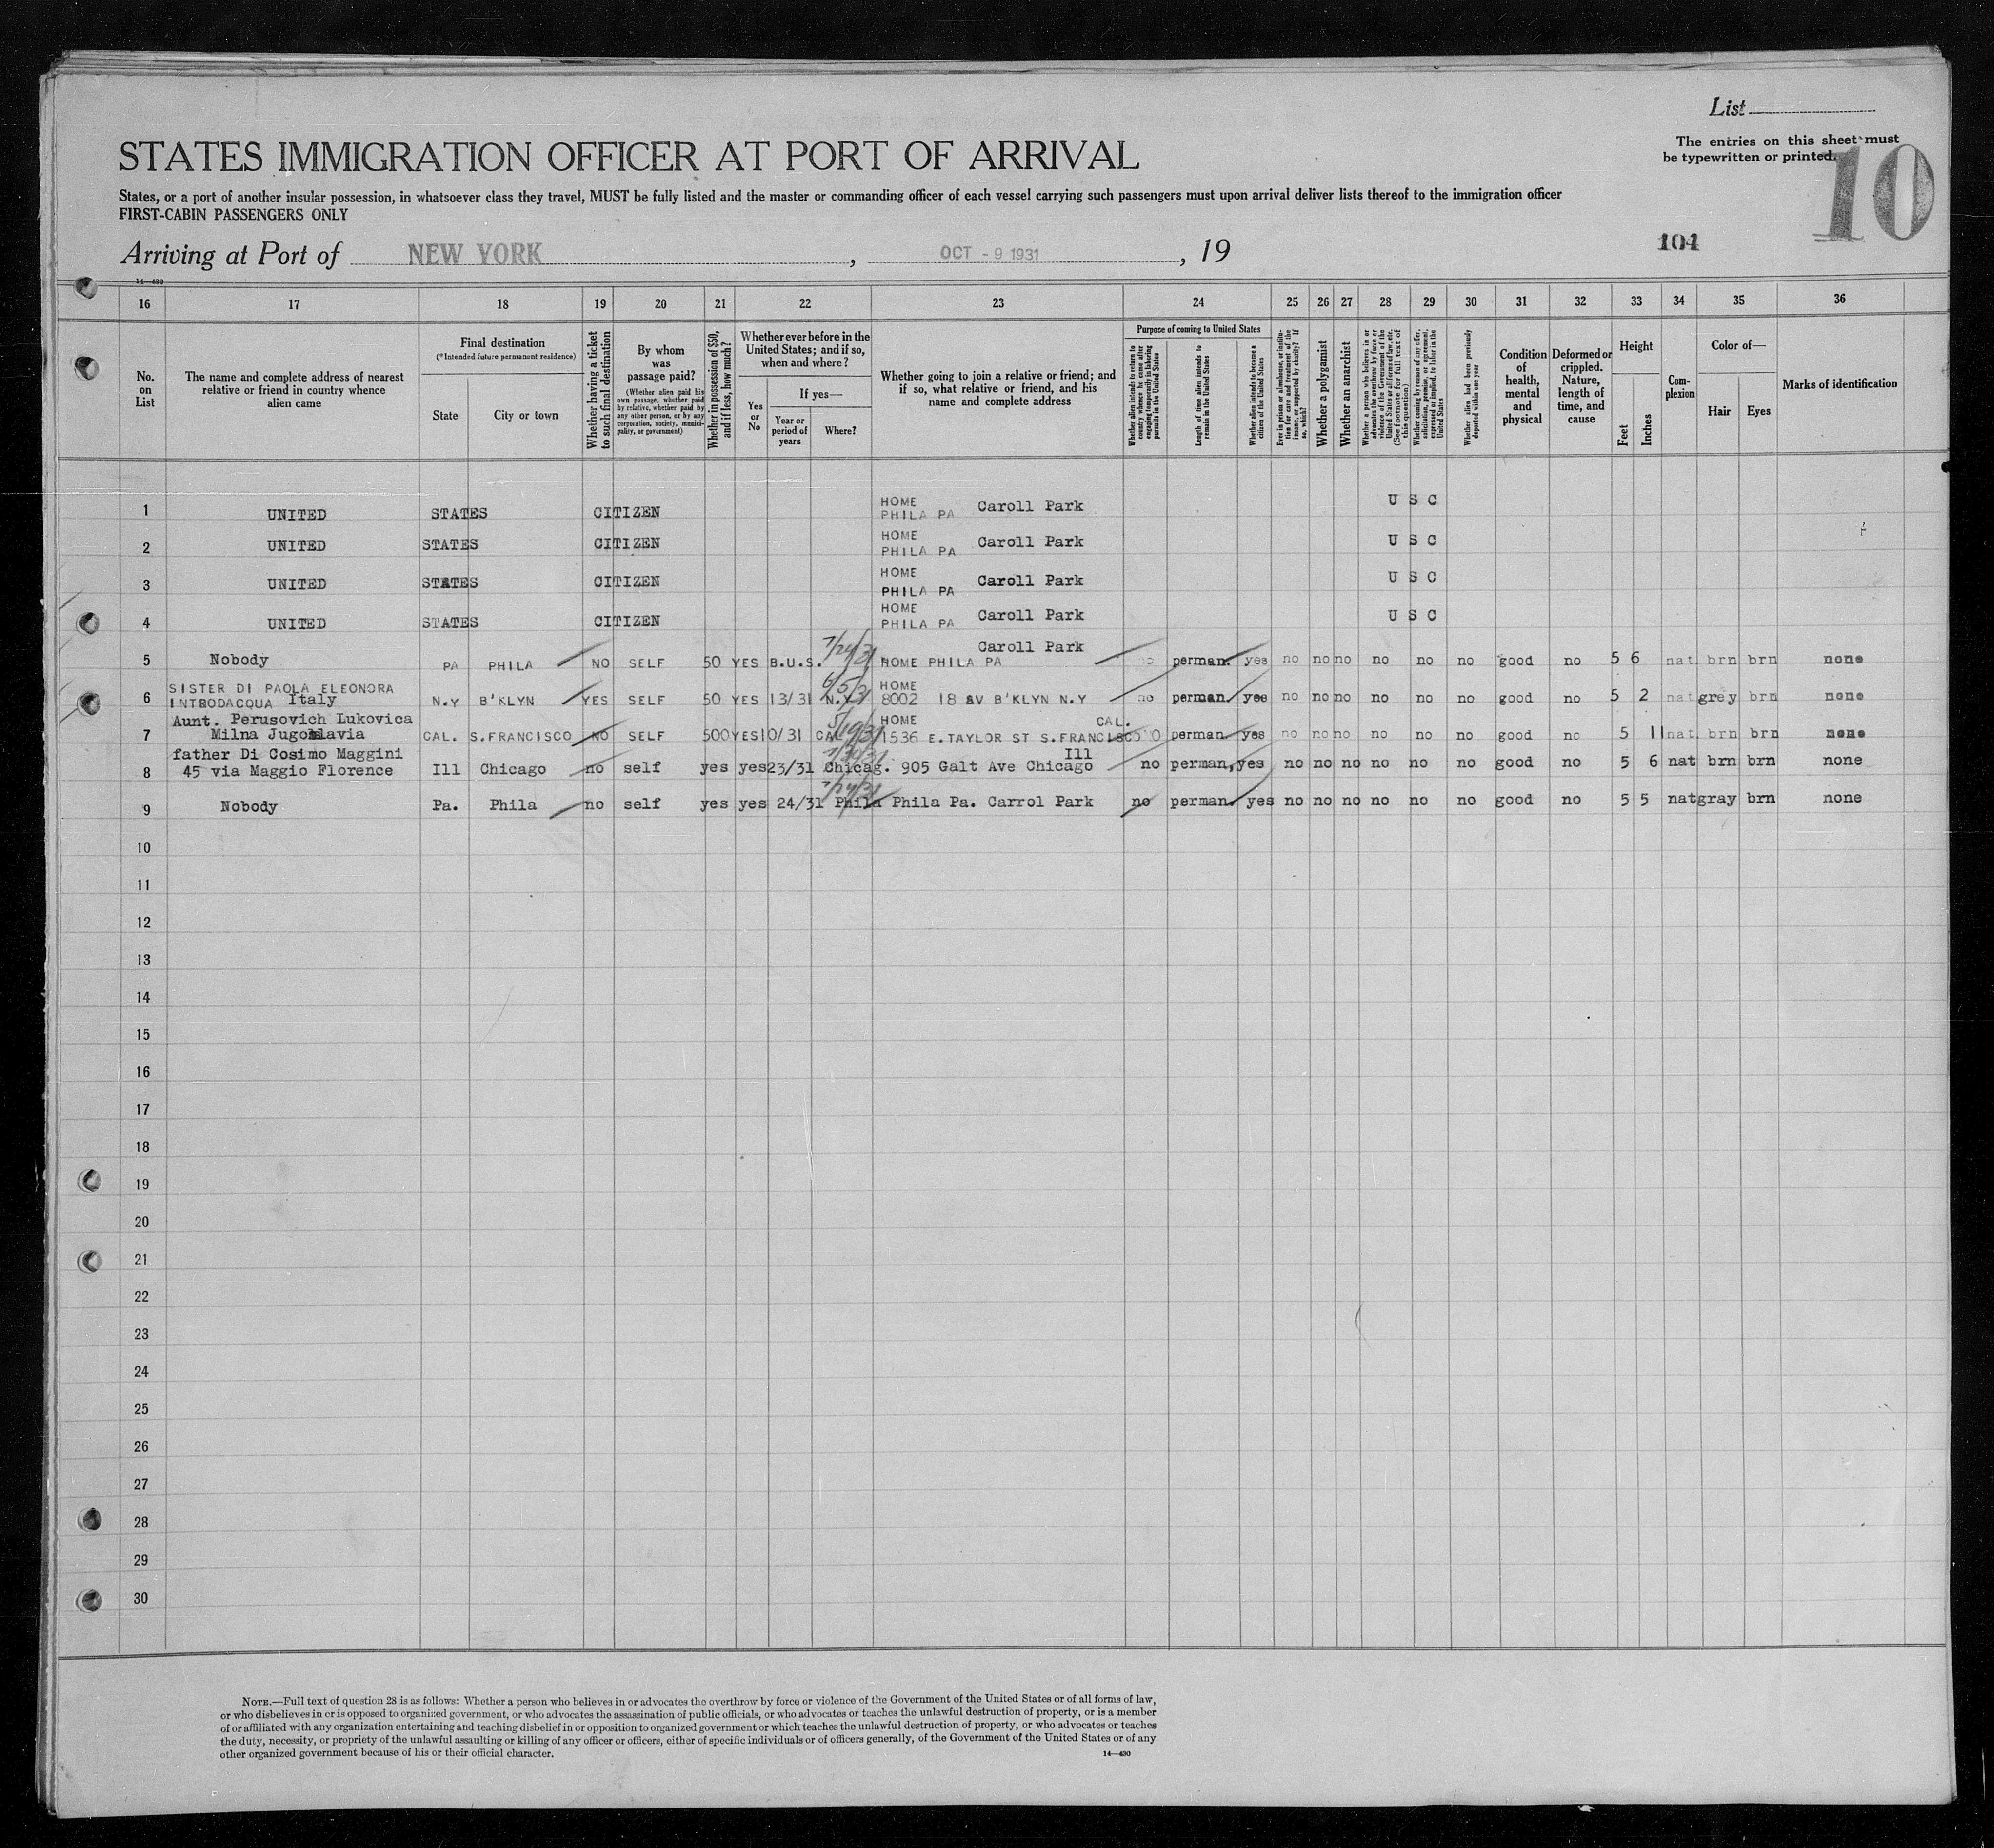 List
The entries on this sheet must
be typewritten or printed.
10
STATES IMMIGRATION OFFICER AT PORT OF ARRIVAL
States, or a port of another insular possession, in whatsoever class they travel, MUST be fully listed and the master or commanding officer of each vessel carrying such passengers must upon arrival deliver lists thereof to the immigration officer
FIRST-CABIN PASSENGERS ONLY
Arriving at Port of NEW YORK , OCT - 9 1931 , 19
104
14—430
16 17 18 19 20 21 22 23 24 25 26 27 28 29 30 31 32 33 34 35 36
No. on List
The name and complete address of nearest relative or friend in country whence alien came
Final destination
(*Intended future permanent residence)
State
City or town
Whether having a ticket to such final destination
By whom was passage paid?
(Whether alien paid his own passage, whether paid by relative, whether paid by any other person, or by any corporation, society, municipality, or government)
Whether in possession of $50, and if less, how much?
Whether ever before in the United States; and if so, when and where?
Yes or No
If yes—
Year or period of years
Where?
Whether going to join a relative or friend; and if so, what relative or friend, and his name and complete address
Purpose of coming to United States
Whether alien intends to return to country whence he came after engaging temporarily in laboring pursuits in the United States
Length of time alien intends to remain in the United States
Whether alien intends to become a citizen of the United States
Ever in prison or almshouse, or institution for care and treatment of the insane, or supported by charity? If so, which?
Whether a polygamist
Whether an anarchist
Whether a person who believes in or advocates the overthrow by force or violence of the Government of the United States or all forms of law, etc. (See footnote for full text of this question)
Whether coming by reason of any offer, solicitation, promise, or agreement, expressed or implied, to labor in the United States
Whether alien had been previously deported within one year
Condition of health, mental and physical
Deformed or crippled. Nature, length of time, and cause
Height
Feet
Inches
Complexion
Color of—
Hair
Eyes
Marks of identification
1 UNITED STATES CITIZEN HOME PHILA PA Caroll Park U S C
2 UNITED STATES CITIZEN HOME PHILA PA Caroll Park U S C
3 UNITED STATES CITIZEN HOME PHILA PA Caroll Park U S C
4 UNITED STATES CITIZEN HOME PHILA PA Caroll Park U S C
Caroll Park
5 Nobody PA PHILA NO SELF 50 YES B.U.S. 7/24/31 HOME PHILA PA no perman. yes no no no no no no good no 5 6 nat brn brn none
SISTER DI PAOLA ELEONORA
6 INTRODACQUA Italy N.Y B'KLYN YES SELF 50 YES 13/31 N.Y 6/5/31 HOME 8002 18 AV B'KLYN N.Y no perman. yes no no no no no no good no 5 2 nat grey brn none
Aunt. Perusovich Lukovica
7 Milna Jugoslavia CAL. S.FRANCISCO NO SELF 500 YES 10/31 CAL 5/19/31 HOME 1536 E.TAYLOR ST S.FRANCISCO CAL. NO perman. yes no no no no no no good no 5 11 nat. brn brn none
father Di Cosimo Maggini
8 45 via Maggio Florence Ill Chicago no self yes yes 23/31 Chicag. 905 Galt Ave Chicago Ill no perman, yes no no no no no no good no 5 6 nat brn brn none
9 Nobody Pa. Phila no self yes yes 24/31 Phila 7/24/31 Phila Pa. Carrol Park no perman. yes no no no no no no good no 5 5 nat gray brn none
10
11
12
13
14
15
16
17
18
19
20
21
22
23
24
25
26
27
28
29
30
NOTE.—Full text of question 28 is as follows: Whether a person who believes in or advocates the overthrow by force or violence of the Government of the United States or of all forms of law,
or who disbelieves in or is opposed to organized government, or who advocates the assassination of public officials, or who advocates or teaches the unlawful destruction of property, or is a member
of or affiliated with any organization entertaining and teaching disbelief in or opposition to organized government or which teaches the unlawful destruction of property, or who advocates or teaches
the duty, necessity, or propriety of the unlawful assaulting or killing of any officer or officers, either of specific individuals or of officers generally, of the Government of the United States or of any
other organized government because of his or their official character.
14—430